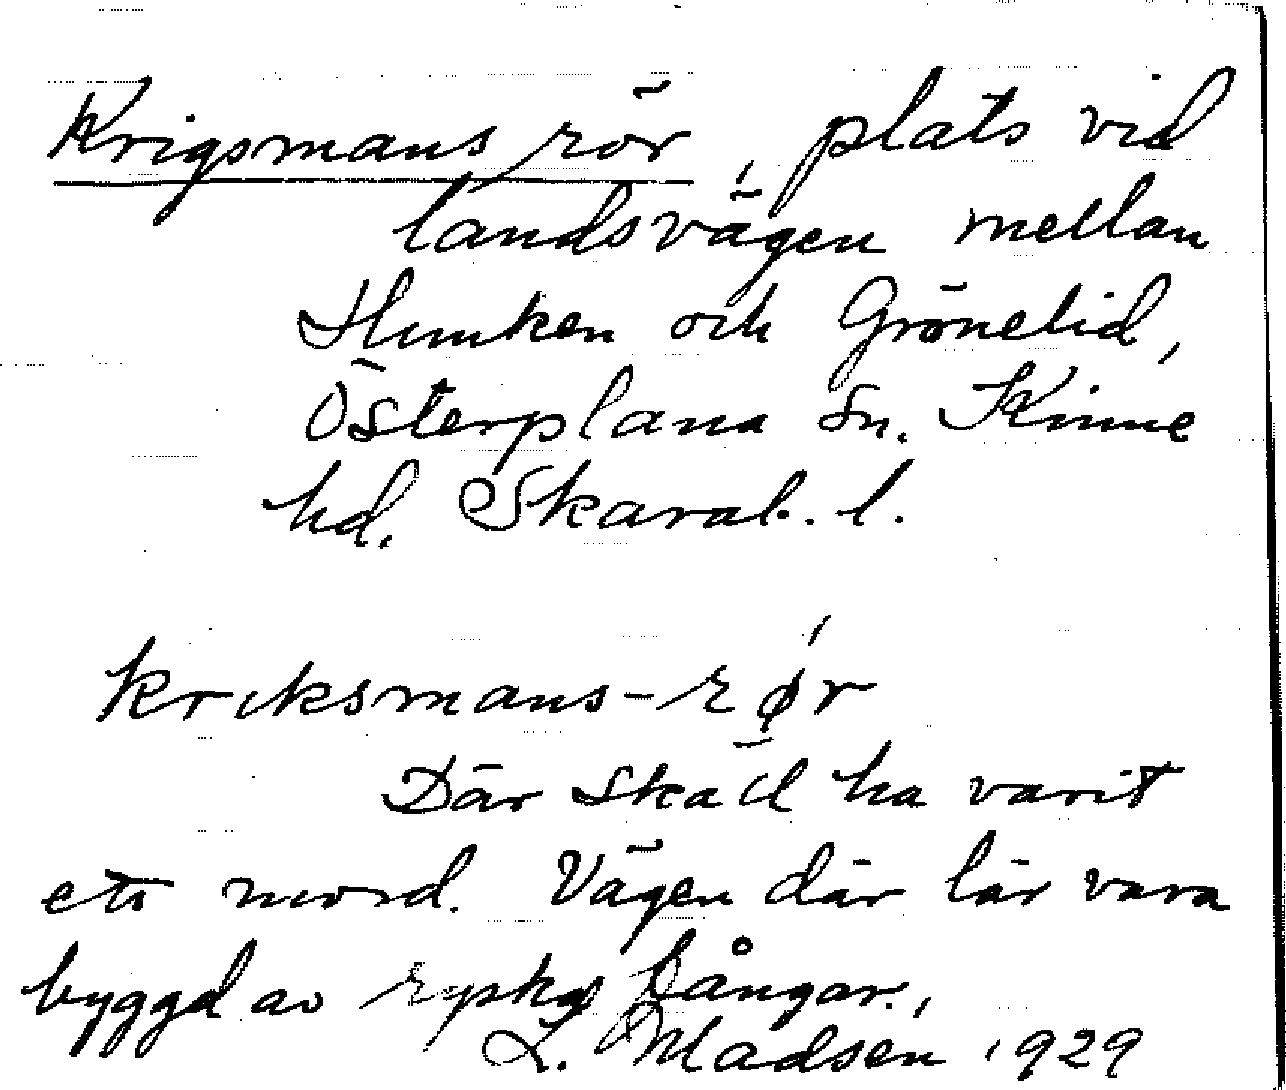 Krigsmans rör, plats vid
landsvägen mellan
Hunken och Grönelid,
Österplana sn. Kinne
hd. Skarab. l.
kriksmans-rør
Där skall ha varit
ett mord. Vägen där lär vara
byggd av ryska fångar.
L. Madsén 1929